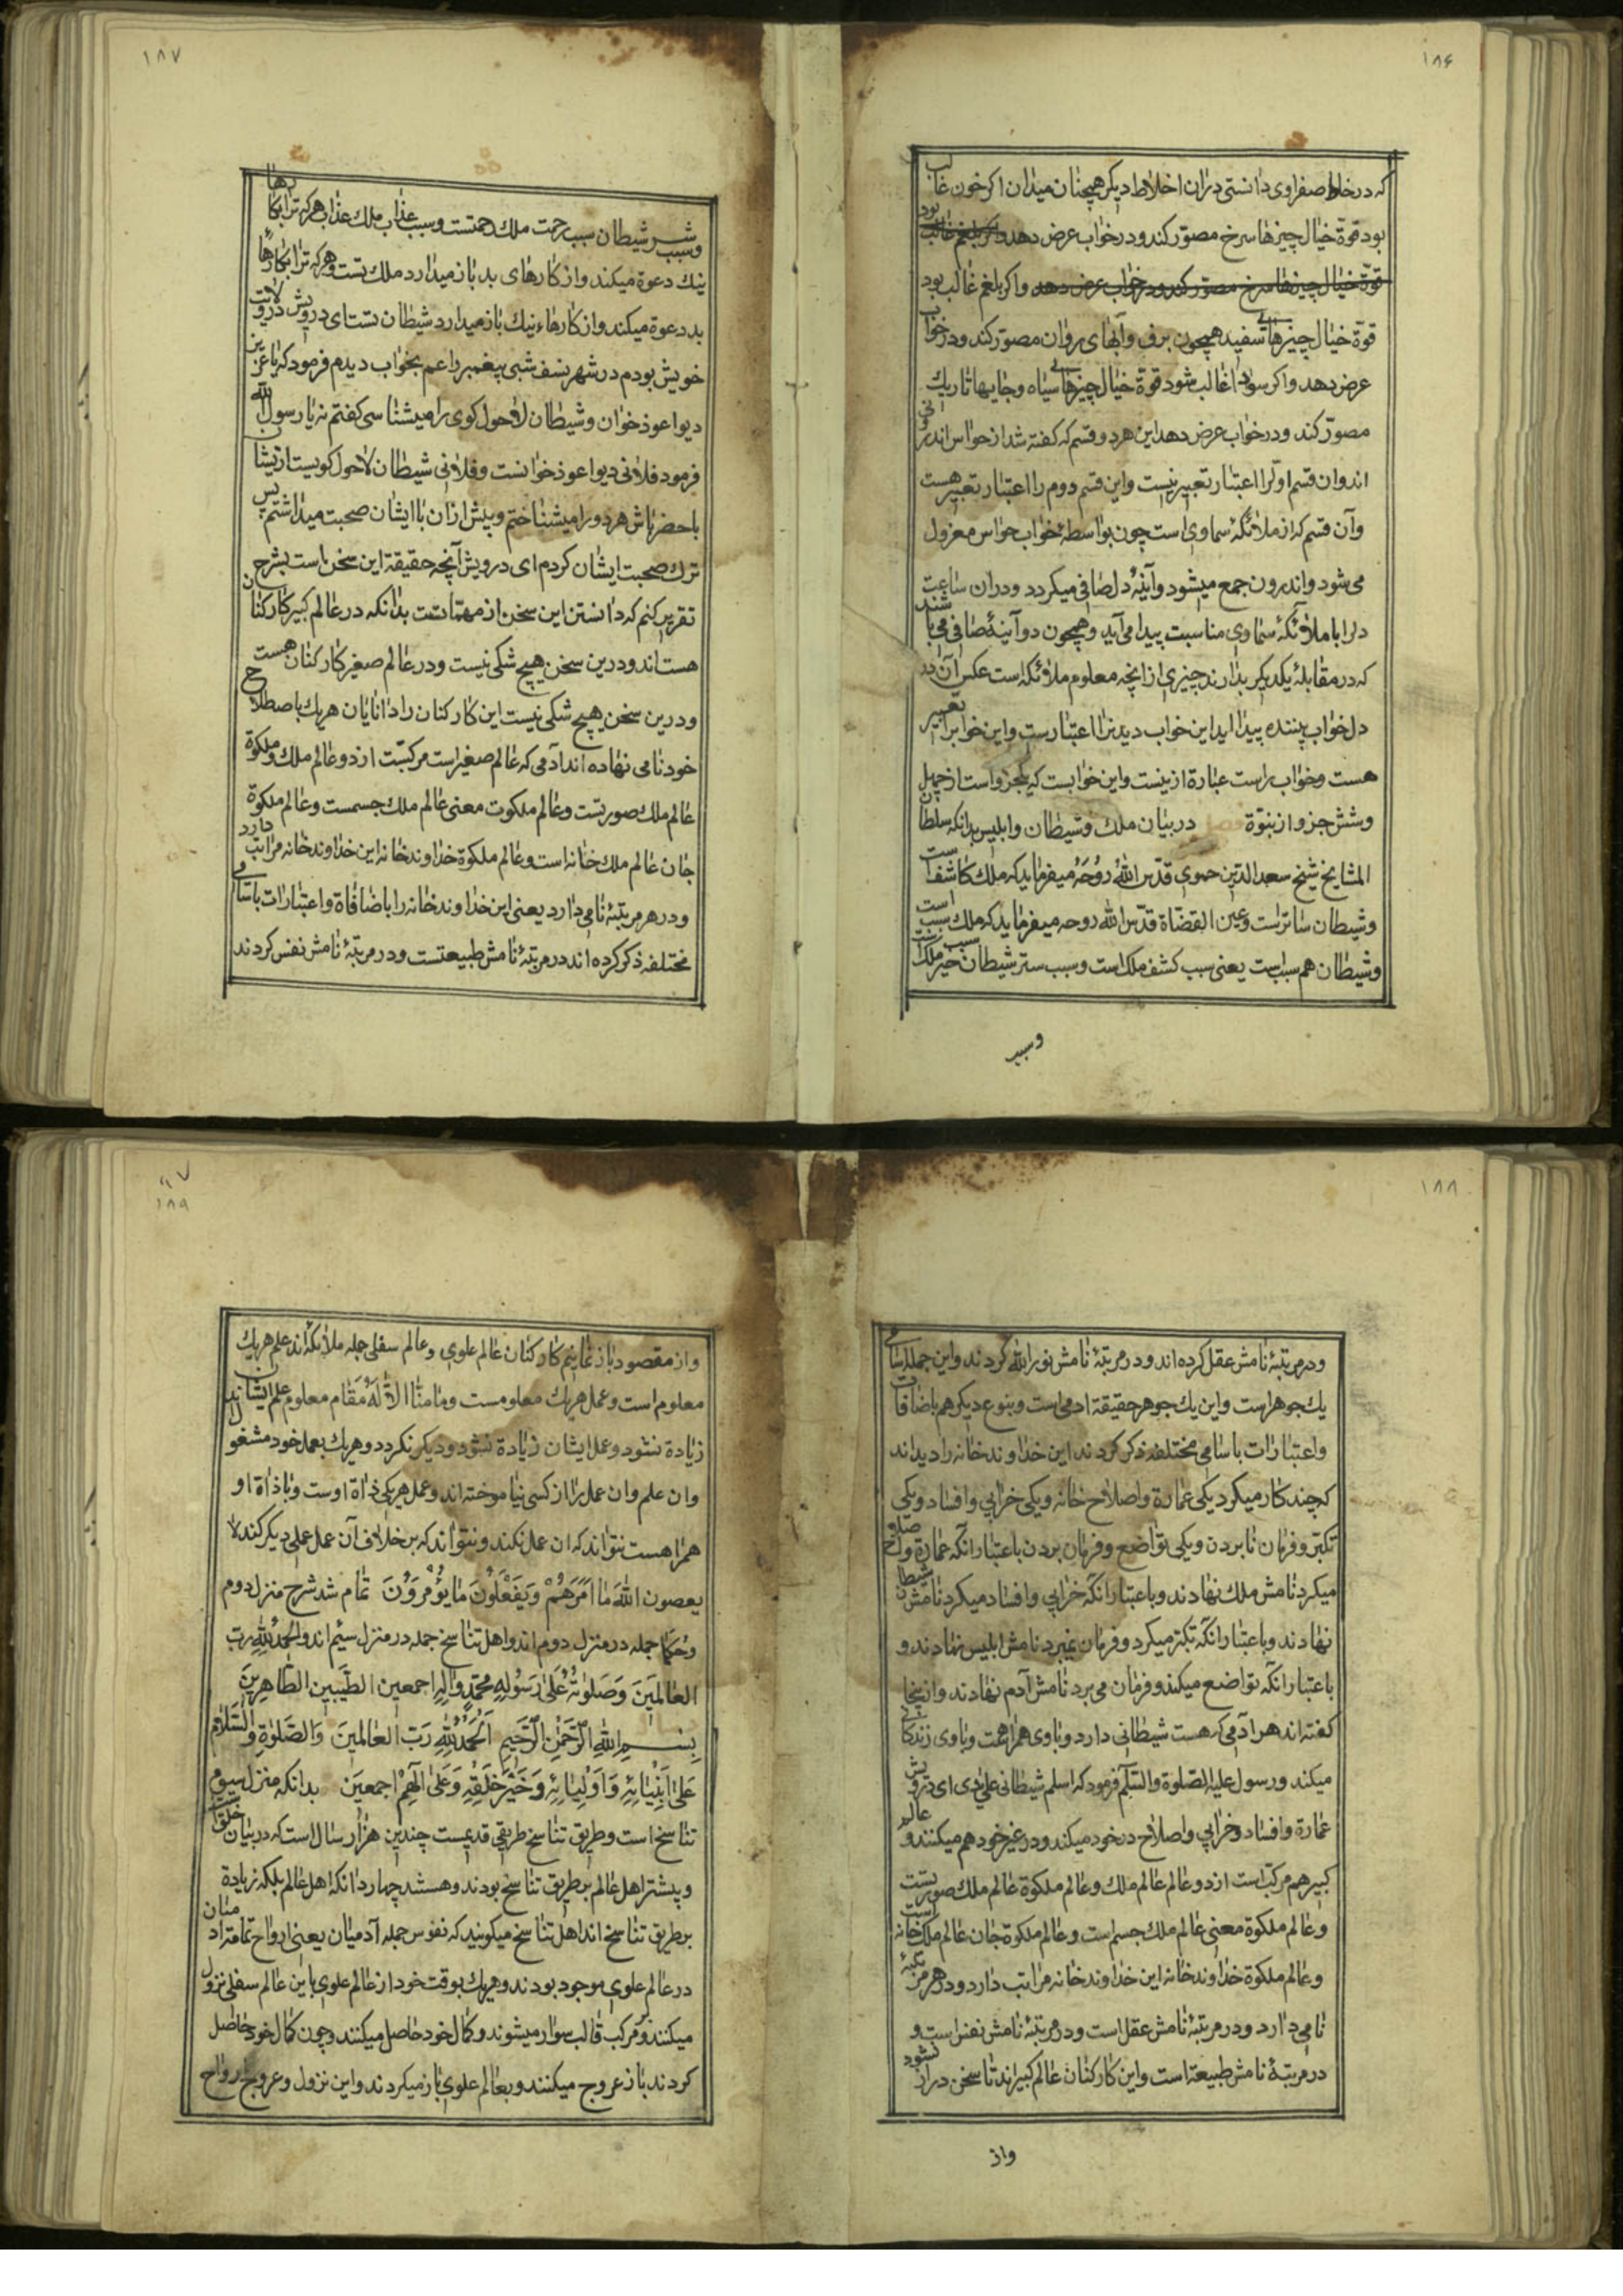 ۱۸۶
که در خلط صفراوی دانستی در ان اخلاط دیکر همچنان میدان اکر خون غالب
بود قوة خیال چیزها سرخ مصوّر کند و در خواب عرض دهد و اکر بلغم غالب بود
قوّة خیال چیزها سرخ مصوّر کند و در خواب عرض دهد و اکر بلغم غالب بود
قوّة خیال چیزهائی سفید همچون برف و آبهای روان مصوّر کند و در خواب
عرض دهد و اکر سودا غالب شود قوة خیال چیزهائی سیاه و جایها تاریك
مصوّر کند و در خواب عرض دهد این هر دو قسم که کفته شد از حواس اندرونی
اند و ان قسم اوّل را اعتبار تعبیر نیست و این قسم دوم را اعتبار تعبیر هست
وآن قسم که از ملائکهٔ سماوی است چون بواسطهٔ خواب حواس معزول
می شود و اندرون جمع میشود و آینهٔ دل صافی میکردد و در ان ساعت
دل را با ملائکهٔ سماوی مناسبت پیدا می آید و همچون دو آینهٔ صافی می باشند
که در مقابلهٔ یکدیکر بدارند چیزی از انچه معلوم ملائکه است عکس آن در
دل خواب بیننده پیدا اید این خواب دیدن را اعتبارست و این خواب را تعبیر
هست و خواب راست عبارة ازینست و این خوابست که یکجزو است از چهل
و شش جزو از نبوّة فصل در بیان ملك و شیطان و ابلیس بدانکه سلطان
المشایخ شیخ سعد الدّین حموی قدّس اللّٰه روحَه میفرماید که ملك کاشف است
و شیطان ساترست و عین القضاة قدّس اللّٰه روحه میفرماید که ملك سبب است
و شیطان هم سببست یعنی سبب کشف ملك است و سبب ستر شیطان سبب خیر ملك است
و سبب
۱۸۷
و سبب شر شیطان سبب رحمت ملك رحمتست و سبب عذاب ملك عذاب هر که ترا بکارها
نیك دعوة میکند و از کارهای بد باز میدارد ملك تست و هر که ترا بکارهاءِ
بد دعوة میکند و از کارهاء نیك باز میدارد شیطان تست ای درویش در ولایت
خویش بودم در شهر نسف شبی پیغمبر را عم بخواب دیدم فرمود که یا عزیز
دیو اعوذ خوان و شیطان لاحول کوی را میشناسی کفتم نه یا رسول اللّٰه
فرمود فلانی دیو اعوذ خوانست و فلانی شیطان لاحول کویست ازیشان
با حضر باش هر دو را میشناختم و بیش از ان با ایشان صحبت میداشتم پس
ترك صحبت ایشان کردم ای درویش آنچه حقیقة این سخن است بشرح
تقریر کنم که دانستن این سخن از مهمّاتست بدانکه در عالم کبیر کارکنان
هست اند و درین سخن هیچ شکی نیست و در عالم صغیر کارکنان هست
و درین سخن هیچ شکی نیست این کارکنان را دانایان هر یك باصطلاح
خود نامی نهاده اند آدمی که عالم صغیر است مرکبّست از دو عالم ملك و ملکوة
عالم ملك صورتست و عالم ملکوت معنی عالم ملك جسمست و عالم ملکوة
جان عالم ملك خانه است و عالم ملکوة خداوند خانه این خداوند خانه مراتب دارد
و در هر مرتبهٔ نامی دارد یعنی این خداوند خانه را باضافاة و اعتبارات باسامی
مختلفه ذکر کرده اند در مرتبهٔ نامش طبیعتست و در مرتبهٔ نامش نفس کردند
۱۸۸
و در مرتبهٔ نامش عقل کرده اند و در مرتبهٔ نامش نور اللّٰه کردند و این جمله اسامی
یك جوهر است و این یك جوهر حقیقة ادمی است و بنوع دیکر هم باضافات
و اعتبارات باسامی مختلفه ذکر کردند این خداوند خانه را دیدند
که چند کار میکرد یکی عمارة و اصلاح خانه و یکی خرابی و افساد و یکی
تکبّر و فرمان نابردن و یکی تواضع و فرمان بردن باعتبار آنکه عمارة و اصلاح
میکرد نامش ملك نهادند و باعتبار آنکه خرابی و افساد میکرد نامش شیطان
نهادند و باعتبار آنکه تکبّر میکرد و فرمان نمیبرد نامش ابلیس نهادند و
باعتبار آنکه تواضع میکند و فرمان می برد نامش آدم نهادند و ازینجا
کفته اند هر آدمی که هست شیطانی دارد و با وی همراهست و با وی زندکانی
میکند و رسول علیه الصّلوة والسّلم فرمود که اسلم شیطانی علی یدی ای درویش
عمارة و افساد و خرابی و اصلاح در خود میکند و در غیر خود هم میکنند و عالم
کبیر هم مرکّبست از دو عالم عالم ملك و عالم ملکوة عالم ملك صورتست
و عالم ملکوة معنی عالم ملك جسم است و عالم ملکوة جان عالم ملك خانه است
و عالم ملکوة خداوند خانه این خداوند خانه مراتب دارد و در هر مرتبهٔ
نامی دارد و در مرتبهٔ نامش عقل است و در مرتبهٔ نامش نفس است و
در مرتبهٔ نامش طبیعة است و این کارکنان عالم کبیر اند تا سخن دراز نشود
و از
۱۸۹
و از مقصود باز نمانیم کارکنان عالم علوی و عالم سفلی جمله ملائکه اند علم هر یك
معلوم است و عمل هر یك معلومست وما منّا الّا له مقام معلوم علم ایشان
زیادة نشود و عمل ایشان زیادة نشود و دیکر نکردد و هر یك بعمل خود مشغول اند
و ان علم و ان عمل را از کسی نیاموخته اند و عمل هر یکی ذاة اوست و با ذاة او
همراهست نتواند که ان عمل نکند و نتواند که بر خلاف آن عمل عملی دیکر کند لا
یعصون اللّٰهَ ما اَمَرَهُمْ وَیَفْعَلُونَ ما یُؤْمَرُونَ تمام شد شرح منزل دوم
و حکما جمله در منزل دوم اند و اهل تناسخ جمله در منزل سیّم اند و الحمدُ للّٰه رب
العٰالَمِینَ وَصَلوٰتُهُ عَلىٰ رَسُولِهِ محمّدٍ واٰلِهِ اجمعین الطّیّبین الطّاهِرِینَ
بِسْمِ اللّٰهِ الرّحْمٰنِ الرَّحیمِ اَلْحَمْدُ لِلّٰهِ رَبّ العٰالَمینَ وَالصَّلوٰةِ والسَّلام
عَلىٰ اَنْبِیٰائِهِ وَاَوْلِیٰائِهِ وَخَیْرِ خَلْقِهِ وَعَلىٰ آلِهِمْ اجمعینَ بدانکه منزل سیوم
تناسخ است و طریق تناسخ طریقی قدیمست چندین هزار سال است که در میان خلق است
و پیشتر اهل عالم بر طریق تناسخ بودند و هستند چهار دانکه اهل عالم بلکه زیادة
بر طریق تناسخ اند اهل تناسخ میکویند که نفوس جمله آدمیان یعنی ارواح تمامت ادمیان
در عالم علوی موجود بودند و هر یك بوقت خود از عالم علوی باین عالم سفلی نزول
میکنند و بر مرکب قالب سوار میشوند و کمال خود حاصل میکنند و چون کمال خود حاصل
کردند باز عروج میکنند و بعالم علوی باز میکردند و این نزول و عروج ارواح